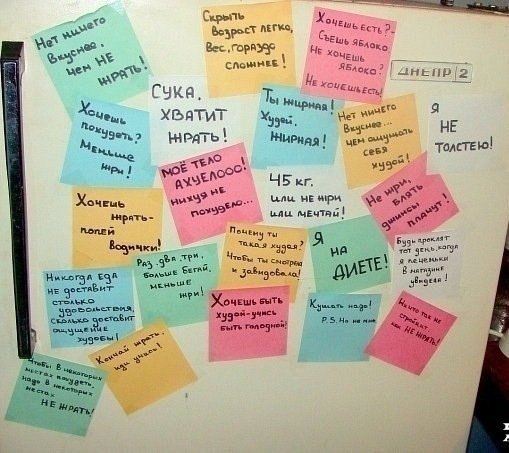 Нет ничего
вкуснее,
чем НЕ
ЖРАТЬ!
Скрыть
возраст легко,
Вес, гораздо
сложнее!
Хочешь есть?-
Съешь яблоко
Не хочешь
яблоко?
Не хочешь есть!
ДНЕПР 2
Хочешь
похудеть?
Меньше
жри!
СУКА,
ХВАТИТ
ЖРАТЬ!
Ты жирная!
Худей,
ЖИРНАЯ!
Нет ничего
вкуснее...
чем ощущать
себя
худой!
Я
НЕ
ТОЛСТЕЮ!
МОЁ ТЕЛО
АХУЕЛООО!
нихуя не
похудело...
45 кг.
или не жри
или мечтай!
Не жри,
блять
джинсы
плачут!
Хочешь
жрать-
попей
водички!
Раз, два, три,
больше бегай,
меньше
жри!
Почему ты
такая худая?
Чтобы ты смотрела
и завидовала!
Я
НА
ДИЕТЕ!
Будь проклят
тот день, когда
я печеньки
в магазине
увидела!
Никогда Еда
не доставит
столько
удовольствия,
сколько доставит
ощущение
худобы!
Хочешь быть
худой-учись
быть голодной!
Кушать надо!
P.S. Но не мне
Ничто так не
стройнит,
как НЕ ЖРАТЬ!
Кончай жрать,
иди учись!
Чтобы в некоторых
местах похудеть,
надо в некоторых
местах
НЕ ЖРАТЬ!